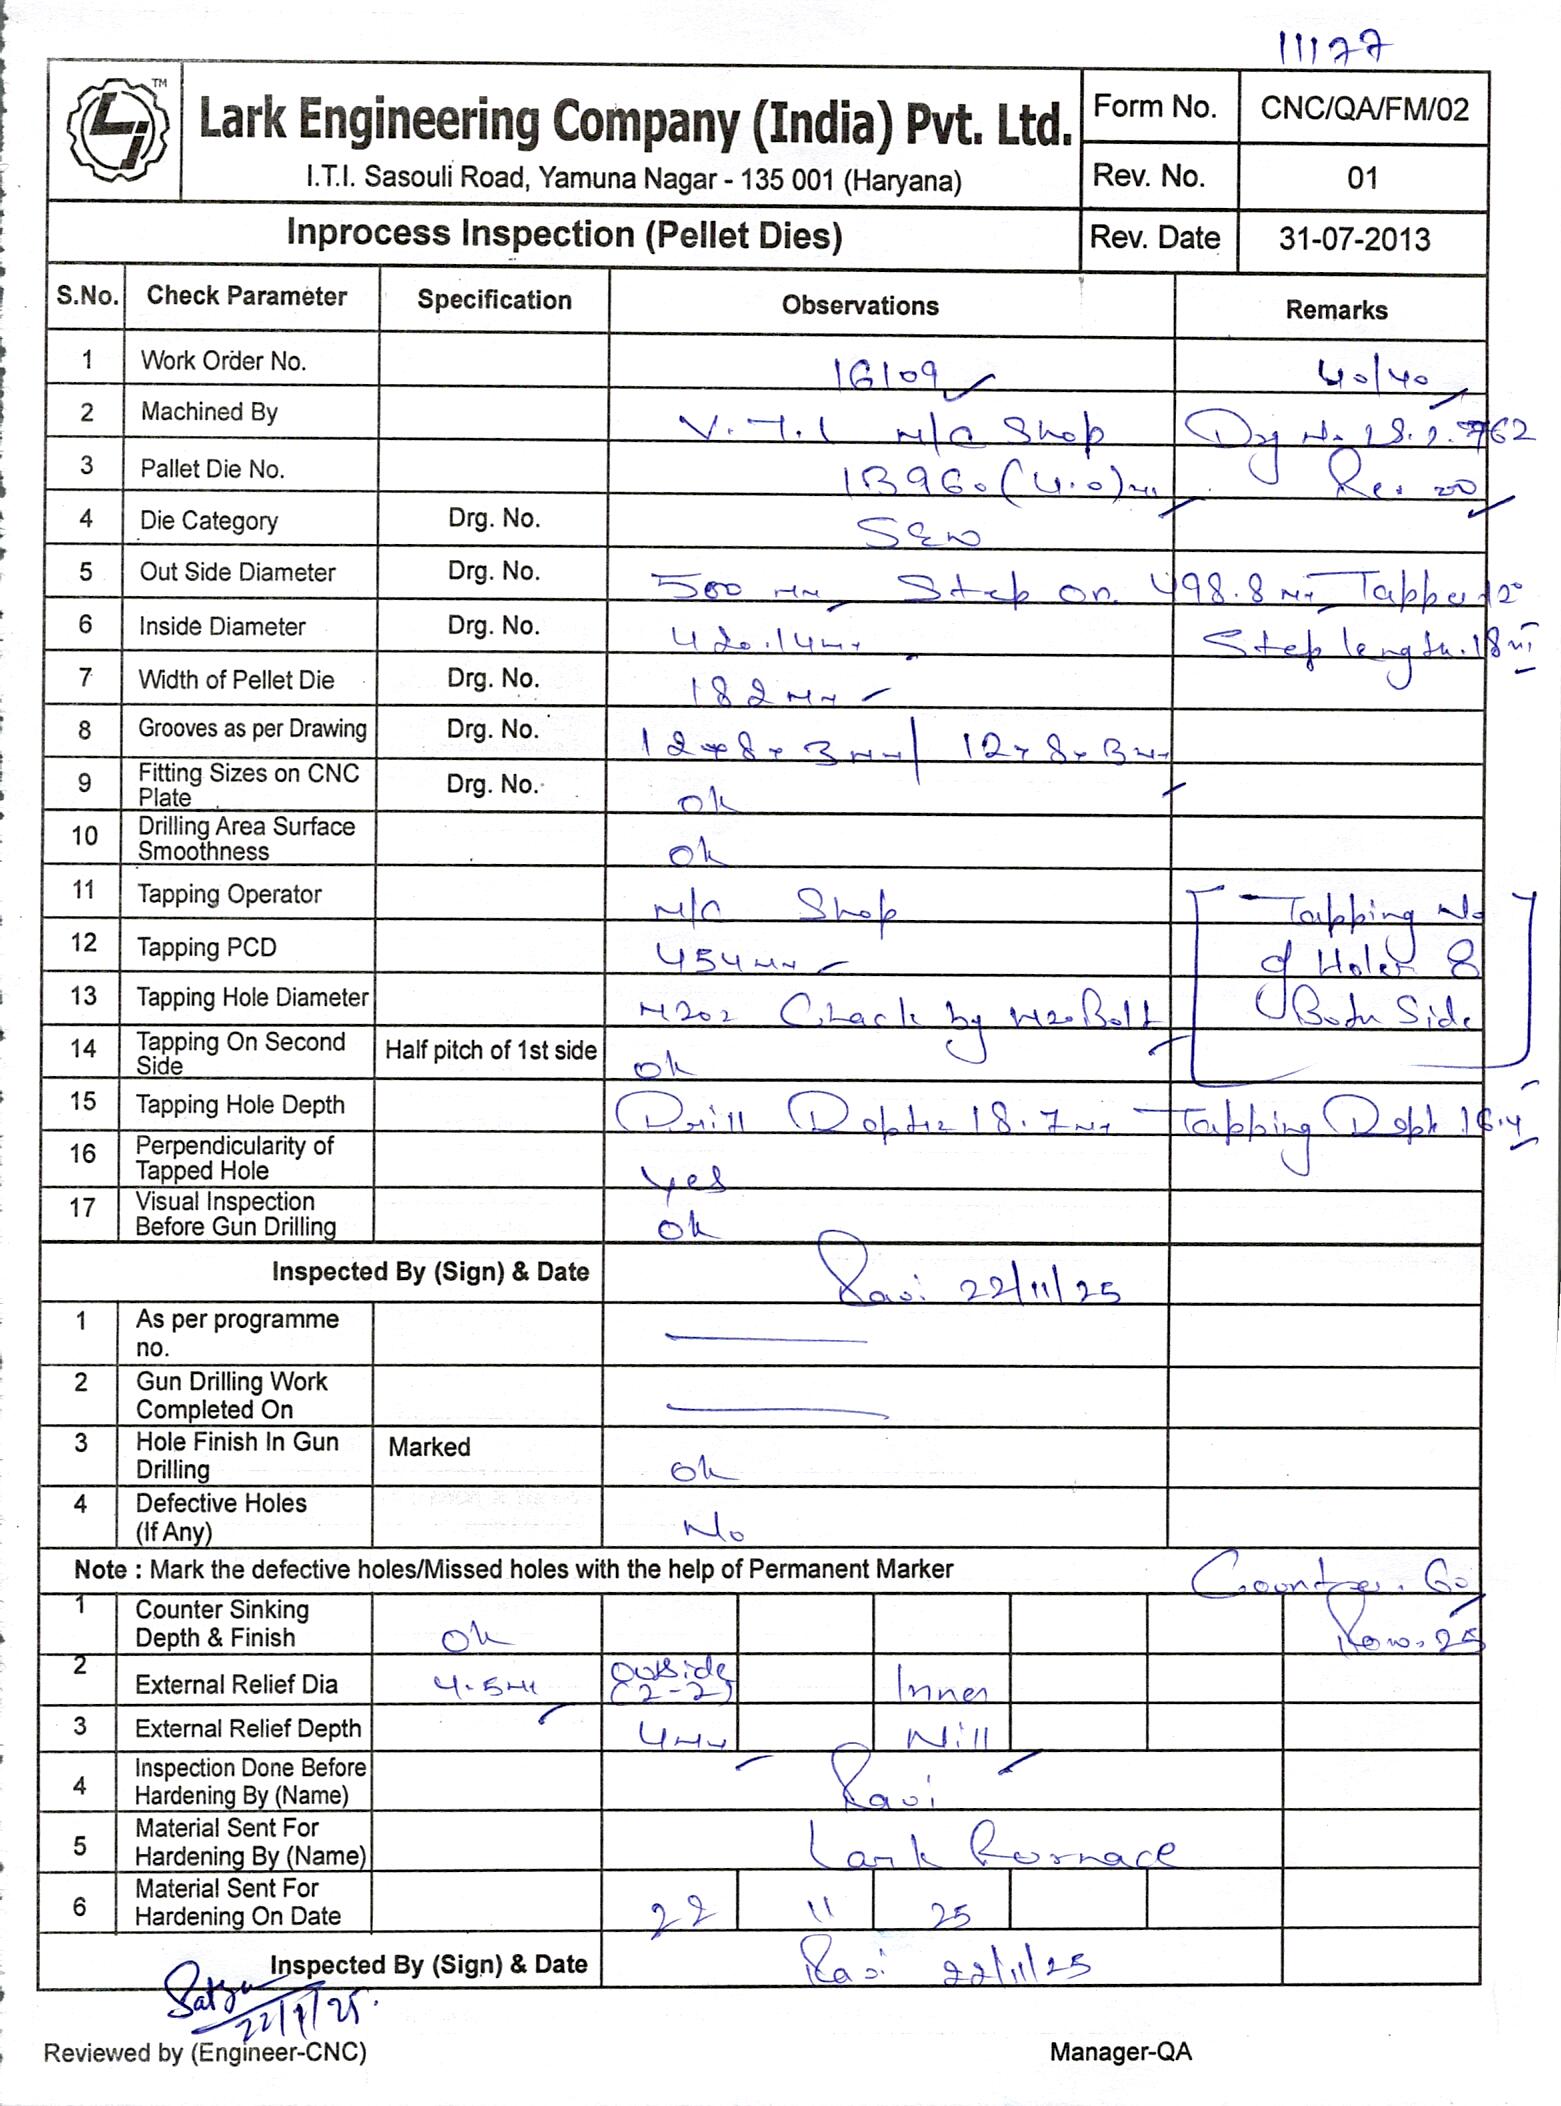 11177
TM
Lark Engineering Company (India) Pvt. Ltd.
I.T.I. Sasouli Road, Yamuna Nagar - 135 001 (Haryana)
Form No. CNC/QA/FM/02
Rev. No. 01
Inprocess Inspection (Pellet Dies) Rev. Date 31-07-2013
S.No. Check Parameter Specification Observations Remarks
1 Work Order No. 16109 40/40
2 Machined By V.T.I M/C Shop Drg No. 18.1.762
3 Pallet Die No. 1B960 (4.0) mm Rev. 00
4 Die Category Drg. No. S&W
5 Out Side Diameter Drg. No. 500 mm Step on 498.8 mm Tapper 12°
6 Inside Diameter Drg. No. 420.14mm Step length. 18 mm
7 Width of Pellet Die Drg. No. 182 mm
8 Grooves as per Drawing Drg. No. 12×8×3mm/ 12×8×3mm
9 Fitting Sizes on CNC Plate Drg. No. Ok
10 Drilling Area Surface Smoothness Ok
11 Tapping Operator M/C Shop Tapping No
12 Tapping PCD 454mm of Holes 8
13 Tapping Hole Diameter M20 Check by M20 Bolt Both Side
14 Tapping On Second Side Half pitch of 1st side Ok
15 Tapping Hole Depth Drill Depth 18.7mm Tapping Depth 16.4
16 Perpendicularity of Tapped Hole Yes
17 Visual Inspection Before Gun Drilling Ok
Inspected By (Sign) & Date Ravi 22/11/25
1 As per programme no.
2 Gun Drilling Work Completed On
3 Hole Finish In Gun Drilling Marked Ok
4 Defective Holes (If Any) No
Note : Mark the defective holes/Missed holes with the help of Permanent Marker Counter. 60
1 Counter Sinking Depth & Finish Ok Row. 25
2 External Relief Dia 4.5mm Outside (2-2) Inner
3 External Relief Depth 4mm Nill
4 Inspection Done Before Hardening By (Name) Ravi
5 Material Sent For Hardening By (Name) Lark Fornace
6 Material Sent For Hardening On Date 22 11 25
Inspected By (Sign) & Date Ravi 22/11/25
22/11/25.
Reviewed by (Engineer-CNC) Manager-QA